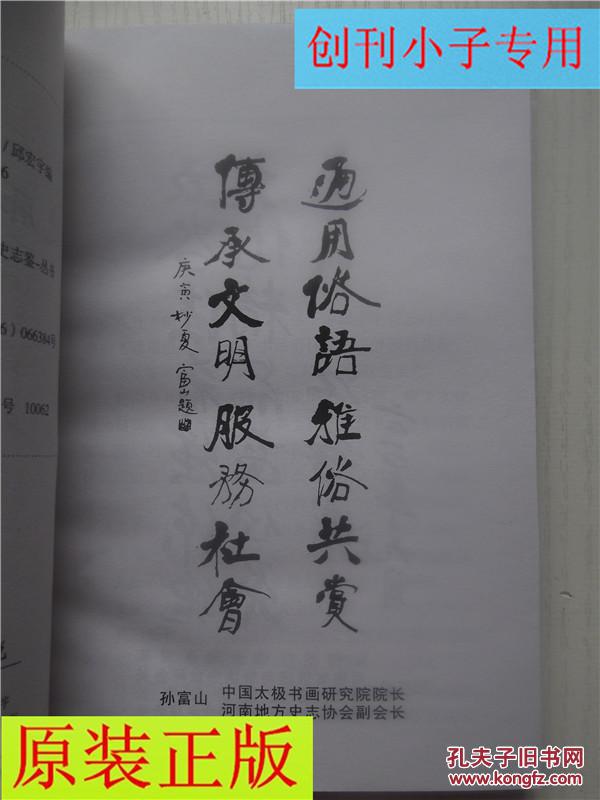 创刊小子专用
通用俗語雅俗共賞
傳承文明服務社會
庚寅杪夏富山題
孙富山
中国太极书画研究院院长
河南地方史志协会副会长
/邱宏宇编
6
史志鉴-丛书
6)066384号
号 10062
原装正版
孔夫子旧书网
www.kongfz.com